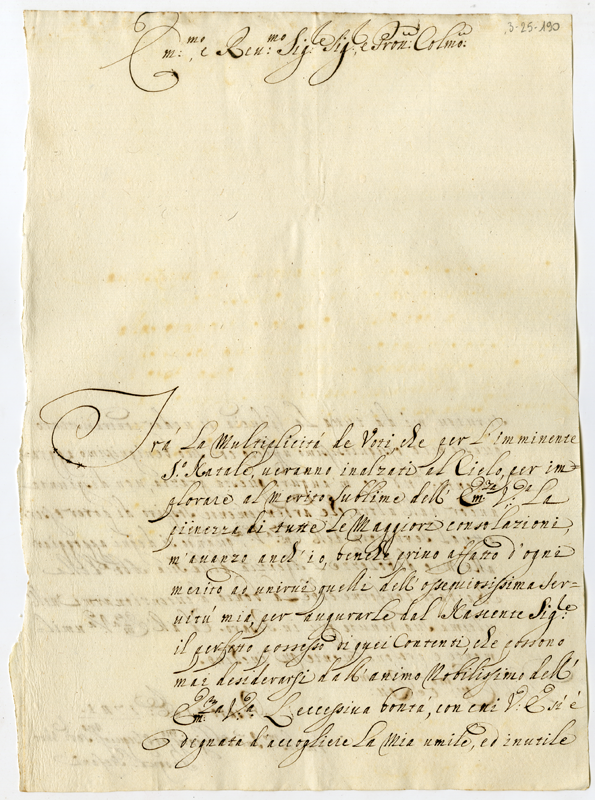 3-25-190
Em:mo, e Reu:mo Sig:re Sig:re, e Pron: Colmo:
Trà La Multiplicità de Voti, che per L'imminente
S:o Natale, ueranno inalzati al Cielo, per im=
plorare al Merito sublime dell' Em:za V:ra La
pienezza di tutte Le Maggiori consolazioni,
m'auanzo anch'io, benche priuo affatto d'ogni
merito ad unirui quelli dell'ossequiosissima ser-
uitù mia, per augurarle dal Nascente Sig:re
il perfetto possesso di quei Contenti, che possono
mai desiderarsi dall'animo Nobilissimo dell'
Em:za V:ra L'eccessiua bontà, con cui V: E: si è
dignata d'accogliere La Mia umile, ed inutile